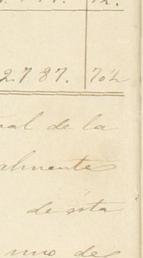 2.787. 702
al de la
almente
de esta
uno de